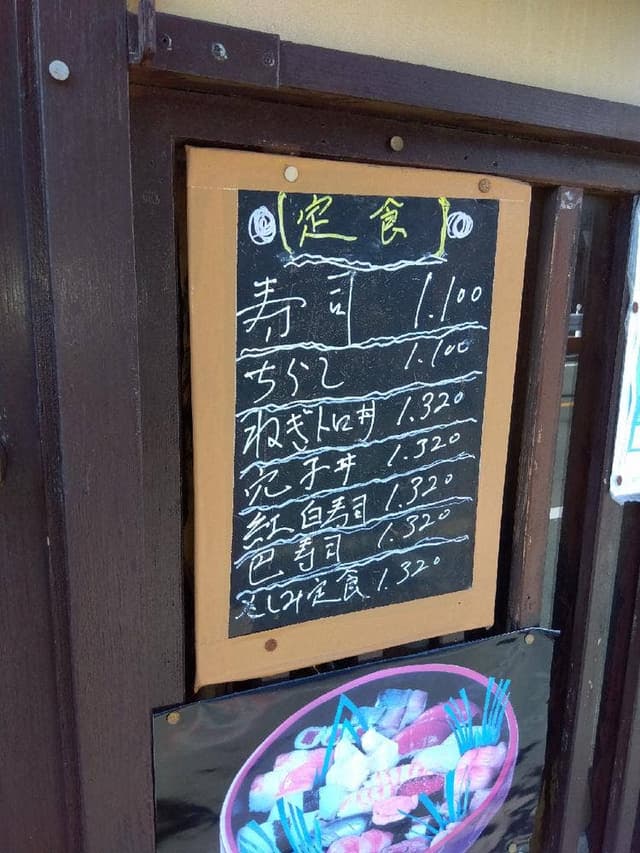 定食
寿司 1.100
ちらし 1.100
ねぎトロ丼 1.320
穴子丼 1.320
紅白寿司 1.320
巴寿司 1.320
さしみ定食 1.320